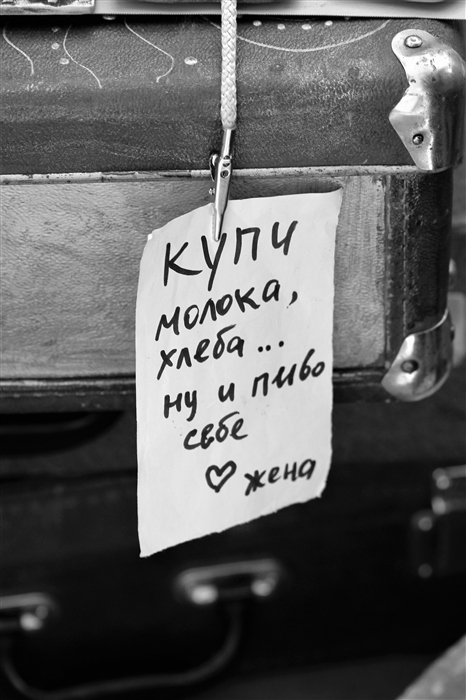 купи
молока,
хлеба...
ну и пиво
себе
♡ жена